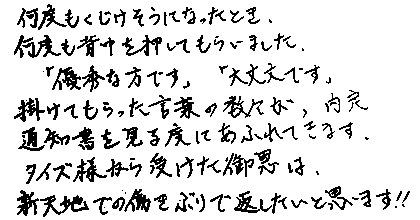 何度もくじけそうになったとき、
何度も背中を押してもらいました。
「優秀な方です」「大丈夫です」
掛けてもらった言葉の数々が、内定
通知書を見る度にあふれてきます。
タイズ様から受けた御恩は、
新天地での働きぶりで返したいと思います!!